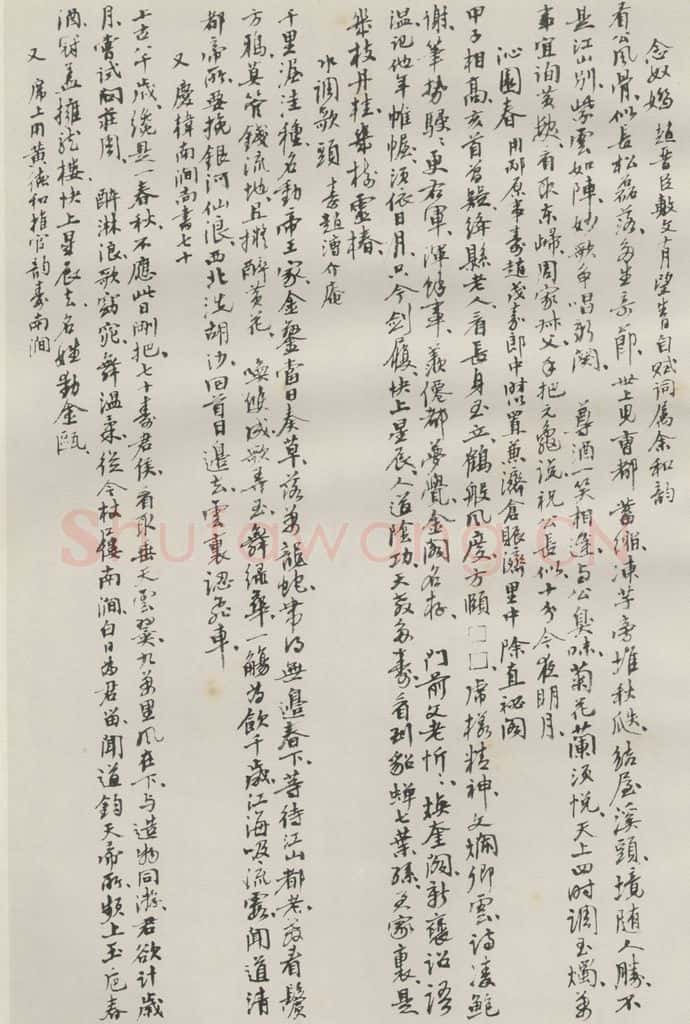 念奴嬌 趙晉臣敷文月望生日自賦詞屬余和韻
看公風骨、似長松磊落、多生奇節、世上兒曹都蓄縮、凍芋旁堆秋瓞、結屋溪頭、境隨人勝、不
是江山別、紫雲如陣、妙歌爭唱新闋 尊酒一笑相逢、與公臭味、菊花蘭須悅、天上四時調玉燭、萬
事宜詢黃髮、看取東歸、周家叔父、手把元龜說、祝公長似、十分今夜明月、
沁園春 用邴原事壽趙茂嘉郎中時以置兼濟倉賑濟里中除直祕閣
甲子相高、亥首曾疑、絳縣老人、看長身玉立、鶴般風度、方頤□□、虎樣精神、文爛卿雲、詩凌鮑
謝、筆勢駸駸更右軍、渾餘事、羨僊都夢覺、金闕名存、 門前父老忻忻、煥奎閣新褒詔語
溫、記他年帷幄、須依日月、只今劍履、快上星辰、人道陰功、天教多壽、看到貂蟬七葉孫、君家裏、是
幾枝丹桂、幾樹靈椿、
水調歌頭 壽趙漕介庵
千里渥洼種、名動帝王家、金鑾當日奏草、落萬龍蛇、帶得無邊春下、等待江山都老、教看鬢
方鴉、莫管錢流地、且擬醉黃花、 喚雙成、歌弄玉、舞綠華、一觴為飲千歲、江海吸流霞、聞道清
都帝所、要挽銀河仙浪、西北洗胡沙、回首日邊去、雲裏認飛車、
又 慶韓南澗尚書七十
上古八千歲、纔是一春秋、不應此日、剛把七十壽君侯、看取垂天雲翼、九萬里風在下、与造物同游、君欲計歲
月、嘗試問莊周、 醉淋浪、歌窈窕、舞溫柔、從今杖屨南澗、白日為君留、聞道鈞天帝所、頻上玉卮春
酒、冠蓋擁龍樓、快上星辰去、名姓動金甌、
又 席上用黃德和推官韻壽南澗
Shufawang.CN